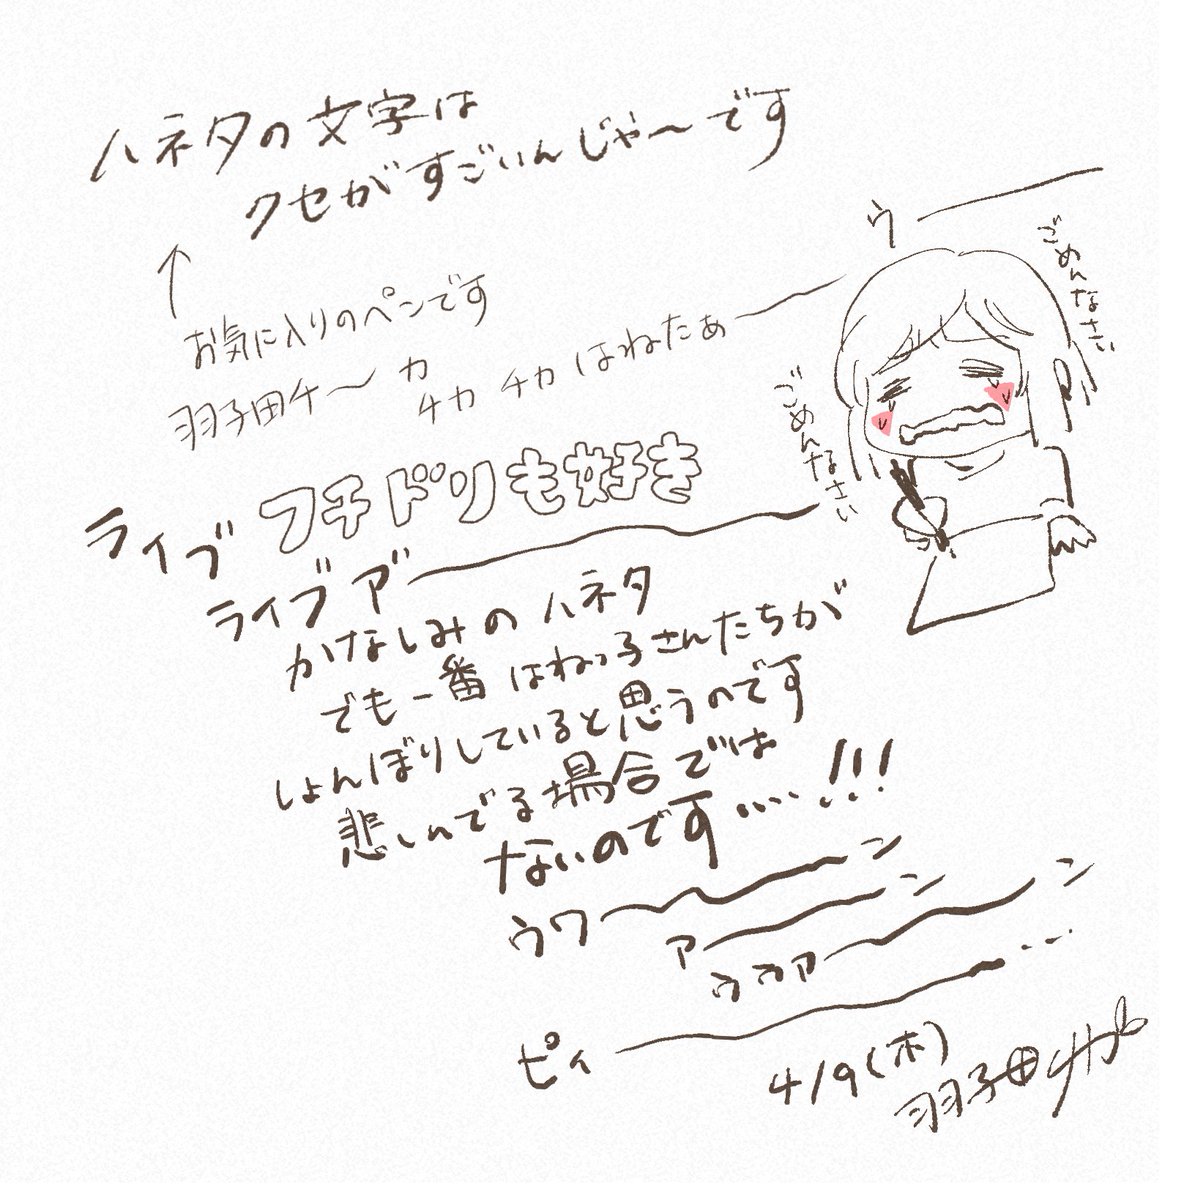 ハネタの文字は
クセがすごいんじゃ〜です
↑
お気に入りのペンです
羽子田チ〜カ
チカ チカ はねたぁー
ウー
ごめんなさい
ごめんなさい
フチドリも好き
ライブ
ライブ ア゛ー
かなしみの ハネタ
でも一番 はねっ子さんたちが
しょんぼりしていると思うのです
悲しんでる場合では
ないのです……!!!
ウワーン
アーン
ウゥァーン
ピィー…
4/9(木)
羽子田チカ